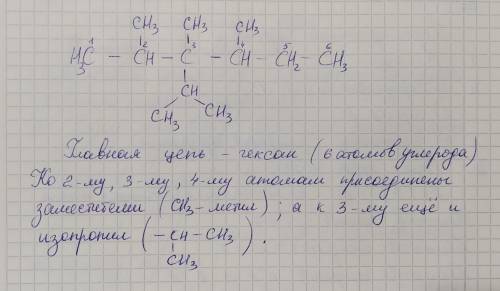 CH₃ CH₃ CH₃
H₃C¹ – ²CH – ³C – ⁴CH – ⁵CH₂ – ⁶CH₃
CH
CH₃ CH₃
Главная цепь – гексан (6 атомов углерода)
Ко 2-му, 3-му, 4-му атомам присоединены
заместители (CH₃ – метил); а к 3-му ещё и
изопропил ( – CH – CH₃ ) .
CH₃